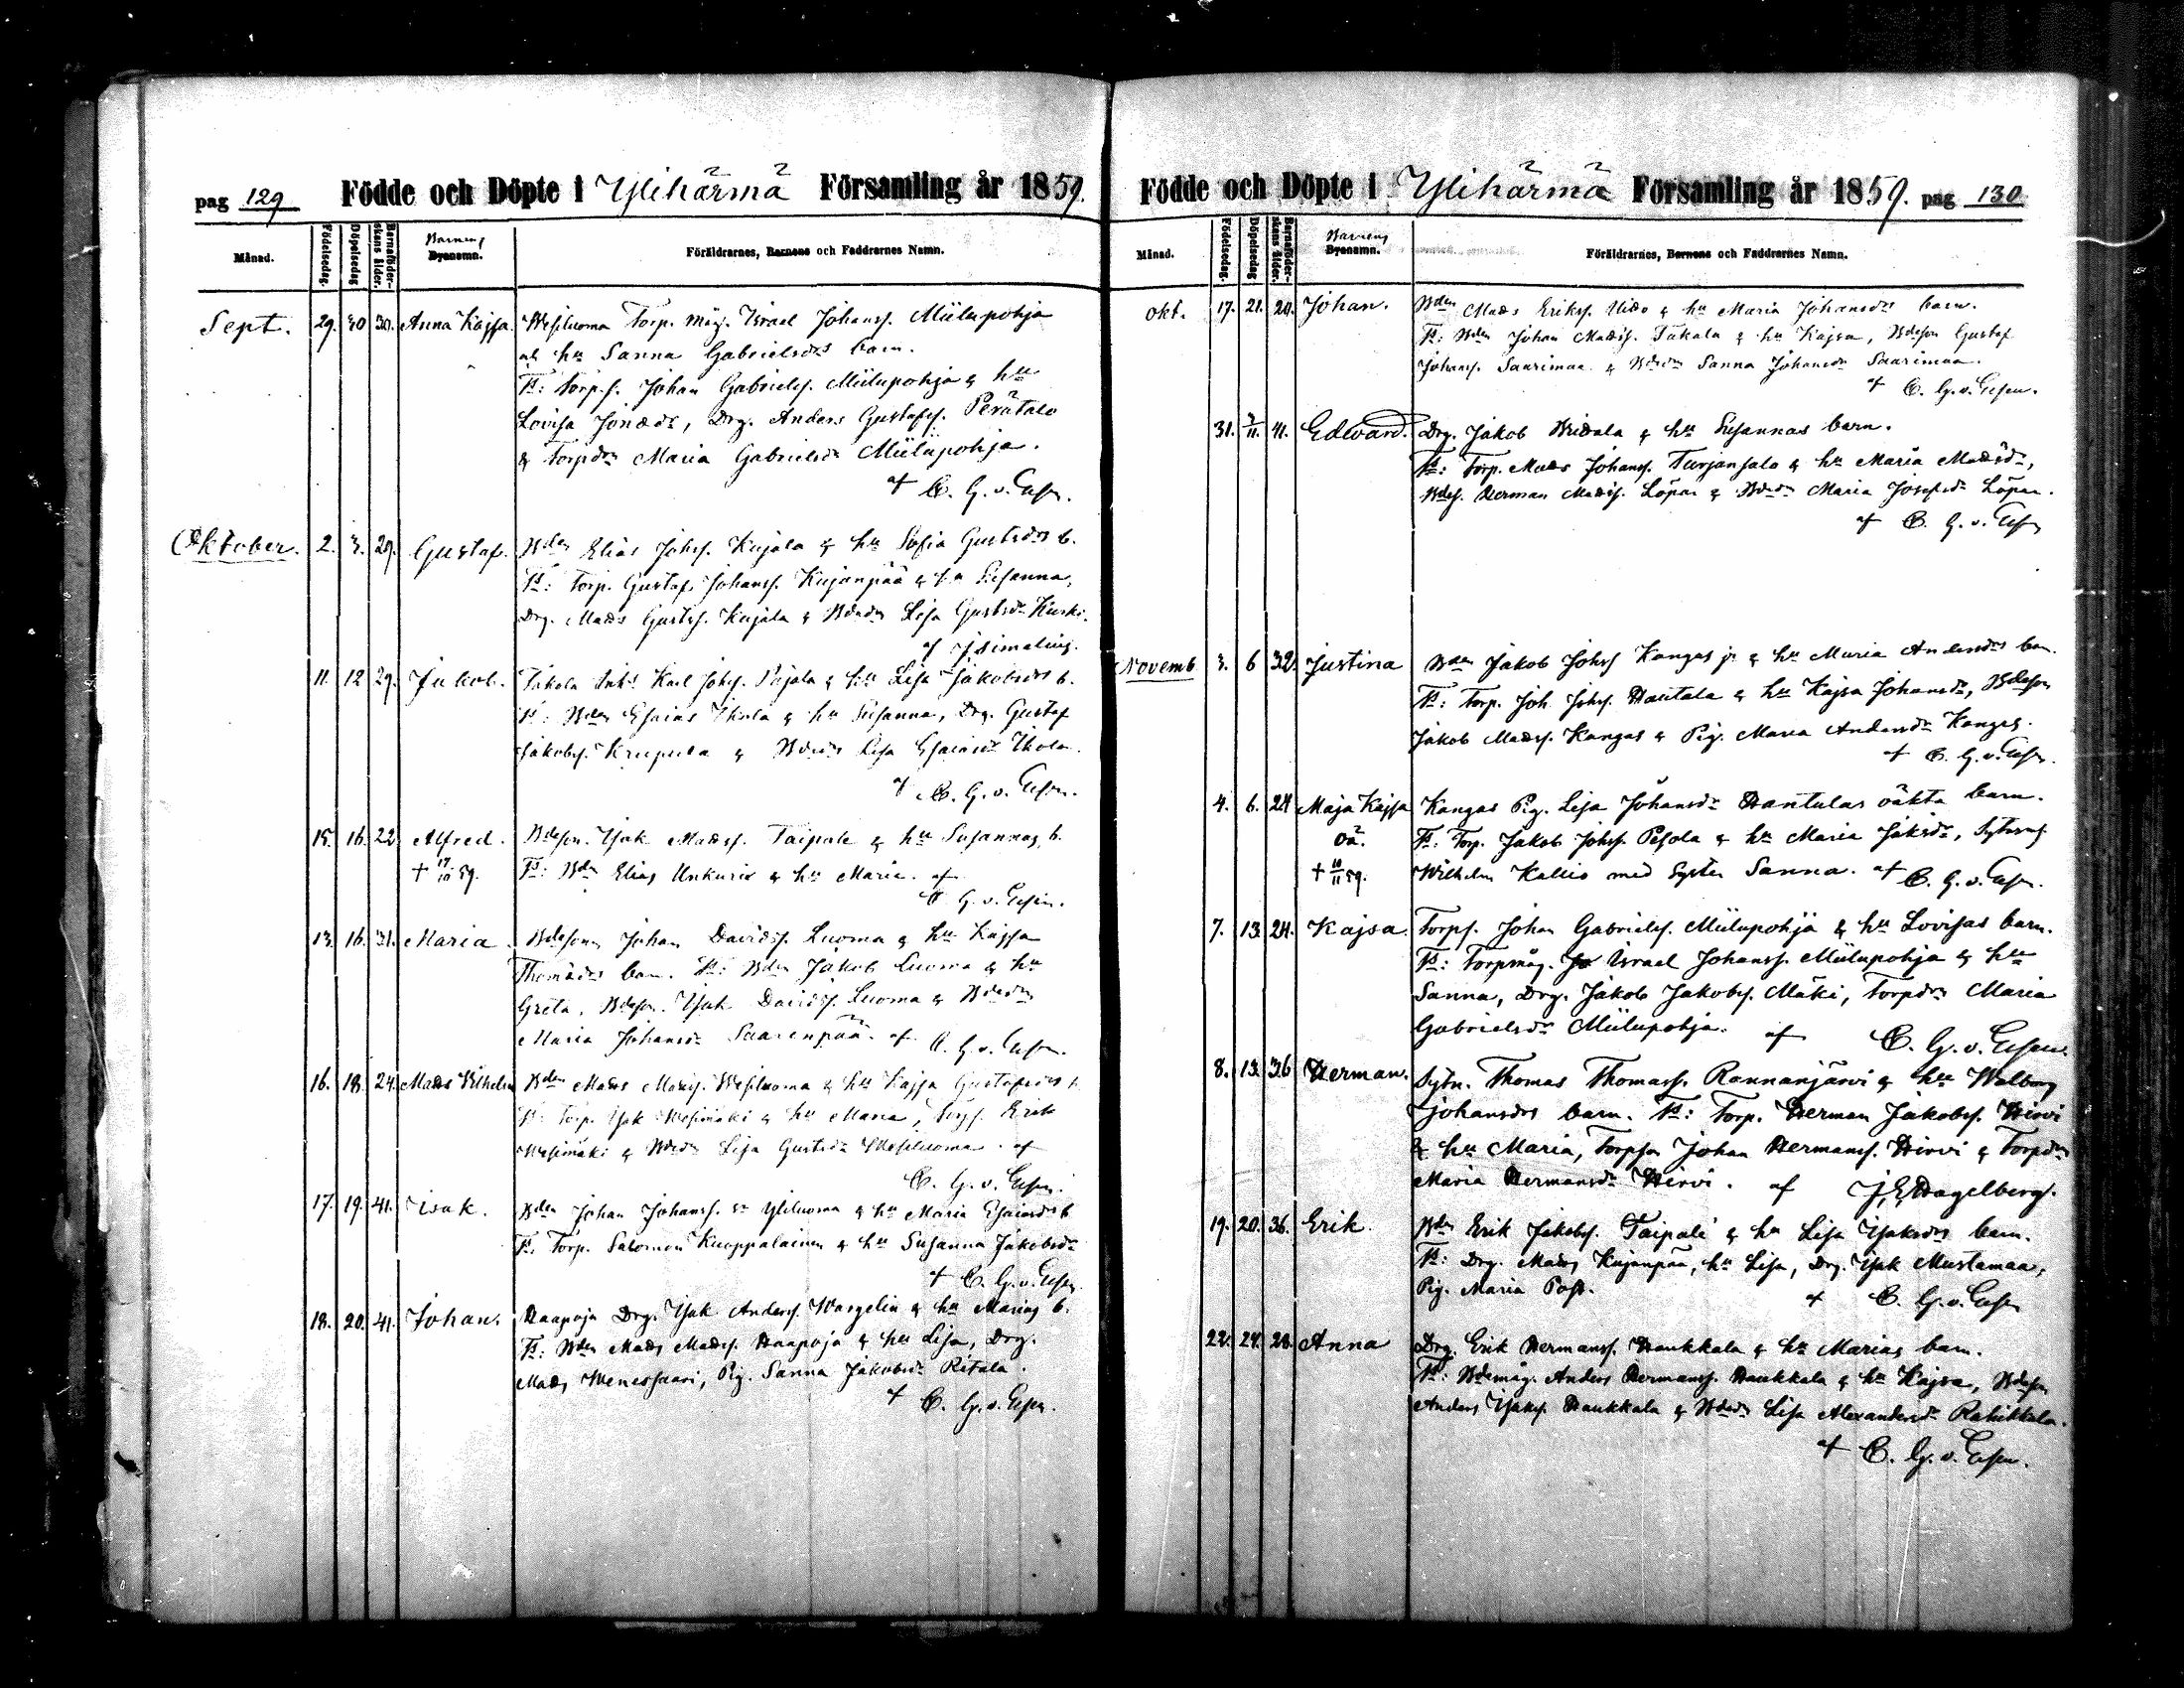 pag 129 Födde och Döpte i Ylihärmä Församling år 1859.
Månad. Födelsedag. Döpelsedag Barnaföderskans ålder. Barnens Byanamn. Föräldrarnes, Barnens och Faddrarnes Namn.
Sept. 29. 30 30. Anna Kajsa. Wesiluoma Torp. måg. Israel Johanss. Miilupohja
och hu Sanna Gabrielsdrs barn.
Fd: Torp.s. Johan Gabrielss. Miilupohja & hu
Lovisa Jonædr, Drg. Anders Gustafss. Perätalo
& Torpdrn Maria Gabrielsdr Miilupohja.
af C. G. v. Essen.
Oktober. 2. 3. 29. Gustaf. Bden Elias Johss. Kujala & hu Sofia Gustsdrs b.
Fd: Torp. Gustaf Johanss. Kujanpää & hu Susanna,
Drg. Mats Gustss. Kujala & Bdedr Lisa Gustsdr Kuski.
af J. Simelius.
11. 12 29. Jakob. Takala Karl Johss. Pajala & hu Lisa Jakobsdrs b.
Fd: Bden Esaias & hu Susanna, Drg. Gustaf
Jakobss. Krupula & Bdedr Lisa Esaiasdr
af C. G. v. Essen.
15. 16. 22 Alfred. Bdeson. Isak Matss. Taipale & hu Susannas b.
† 17/10 59. Fd: Bden Elias Unkuri & hu Maria. af
C. G. v. Essen.
13. 16. 31. Maria. Bdesonen Johan Davidss. Luoma & hu Kajsa
Thomædrs barn. Fd: Bden Jakob Luoma & hu
Greta, Bdeson. Isak Davidss. Luoma & Bdedrn
Maria Johansdr Saarenpää. af C. G. v. Essen.
16. 18. 24. Mats Wilhelm Bden Mats Matss. Wesiluoma & hu Kajsa Gustafsdrs b.
Fd: Torp. Isak Wesimäki & hu Maria, Torps. Erik
Wesimäki & Bdedr Lisa Gustsdr Wesiluoma. af
C. G. v. Essen.
17. 19. 41. Isak. Bden Johan Johanss. Yliluoma & hu Maria Esaiasdrs b.
Fd: Torp. Salomon Kuoppalainen & hu Susanna Jakobsdr
af C. G. v. Essen.
18. 20. 41. Johan. Haapoja Drg. Isak Anderss. Wargelin & hu Marias b.
Fd: Bden Mats Matss. Haapoja & hu Lisa, Drg.
Mats Wenessaari, Pig. Sanna Jakobsdr Ritala.
af C. G. v. Essen.
Födde och Döpte i Ylihärmä Församling år 1859. pag 130
Månad. Födelsedag. Döpelsedag Barnaföderskans ålder. Barnens Byanamn. Föräldrarnes, Barnens och Faddrarnes Namn.
Okt. 17. 21. 20. Johan. Bden Mats Erikss. Uito & hu Maria Johansdrs barn.
Fd: Bden Johan Matss. Takala & hu Kajsa, Bdeson Gustaf
Johanss. Saarimaa & Bdedr Sanna Johansdr Saarimaa.
af C. G. v. Essen.
31. 11. 41. Edward. Drg. Jakob Hridala & hu Susannas barn.
Fd: Torp. Mats Johanss. Turjansalo & hu Maria Matsdr,
Bdes. Herman Matss. Löpar & Bdedr Maria Josefsdr Löpar.
af C. G. v. Essen
Novemb. 3. 6 32. Justina Bden Jakob Johss Kangas jr & hu Maria Andersdrs barn.
Fd: Torp. Joh Johss. Hautala & hu Kajsa Johansdr, Bdeson
Jakob Matss. Kangas & Pig. Maria Andersdr Kangas.
af C. G. v. Essen.
4. 6. 24 Maja Kajsa Kangas Pig. Lisa Johansdr Hantulas oäkta barn.
oä. Fd: Torp. Jakob Johss. Pesola & hu Maria Jaksdr,
† 10/11 59. Wilhelm Kallio med Syster Sanna. af C. G. v. Essen.
7. 13. 24. Kajsa. Torps. Johan Gabrielss. Miilupohja & hu Lovisas barn.
Fd: Torpmåg. Israel Johanss. Miilupohja & hu
Sanna, Drg. Jakob Jakobss. Mäki, Torpdrn Maria
Gabrielsdr Miilupohja. af C. G. v. Essen.
8. 13. 36 Herman. Sytn. Thomas Thomass. Rannanjärvi & hu Walborg
Johansdrs barn. Fd: Torp. Herman Jakobss. Hirvi
& hu Maria, Torpson Johan Hermanss. Hirvi & Torpdrn
Maria Hermansdr Hirvi. af J. E. Hagelberg.
19. 20. 36. Erik. Bden Erik Jakobss. Taipale & hu Lisa Isaksdrs barn.
Fd: Drg. Mats Kujanpää, hu Lisa, Drg. Isak Mustamaa,
Pig. Maria Post.
af C. G. v. Essen
22. 24. 28. Anna Drg. Erik Hermanss. Haukkala & hu Marias barn.
Fd: Bdemåg. Anders Hermanss. Haukkala & hu Kajsa, Bdeson
Anders Isakss. Haukkala & Bdedr Lisa Alexandersdr Rahikkala.
af C. G. v. Essen.